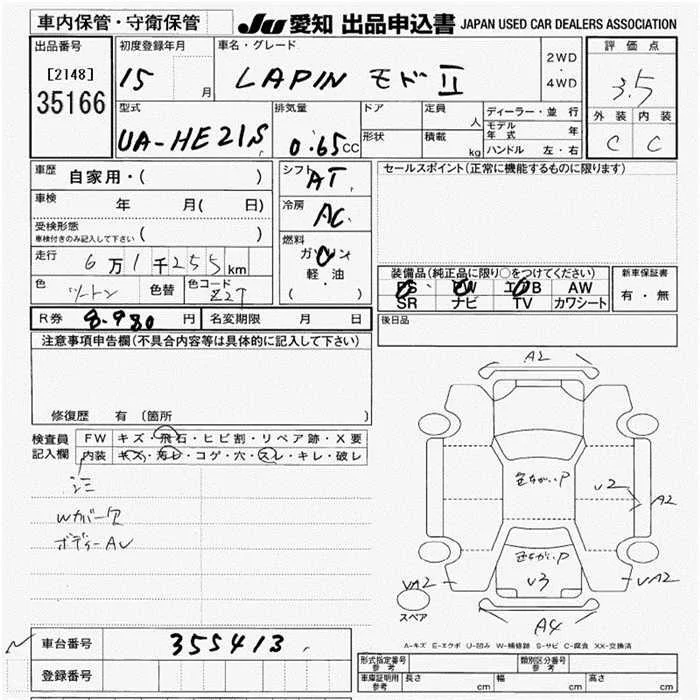 車内保管・守衛保管 JU 愛知 出品申込書 JAPAN USED CAR DEALERS ASSOCIATION
出品番号 初度登録年月 車名・グレード 2WD・4WD 評価点
[2148] 15 月 LAPIN モード II 3.5
35166
型式 排気量 ドア 定員 人 ディーラー・並行 外装 内装
UA-HE21S 0.65 CC 形状 積載 kg モデル年式 年 C C
ハンドル 左・右
車歴 自家用・( ) シフト AT セールスポイント(正常に機能するものに限ります)
車検 年 月( 日) 冷房 AC
受検形態
車検付きのみ記入して下さい ( )
燃料
走行 6万1千255km ガソリン
軽・油
( )
装備品(純正品に限り○をつけてください) 新車保証書
色 ツートン 色替 色コード Z2T
PS PW エアB AW 有・無
SR ナビ TV カワシート
R券 8.980 円 名変期限 月 日 後日品
注意事項申告欄(不具合内容等は具体的に記入して下さい)
修復歴 有 (箇所 )
検査員記入欄 FW キズ・飛石・ヒビ割・リペア跡・X要
内装 キズ・汚レ・コゲ・穴・スレ・キレ・破レ
シミ
Wカバー欠
ボディーAU
A2
色あせP
U2 A2
色あせP
U3
UA2 UA2
A4
スペア
A-キズ E-エクボ U-凹み W-補修跡 S-サビ C-腐食 XX-交換済
車台番号 355413
登録番号
形式指定番号参考 類別区分番号参考
車庫証明用参考 長さ cm 幅 cm 高さ cm